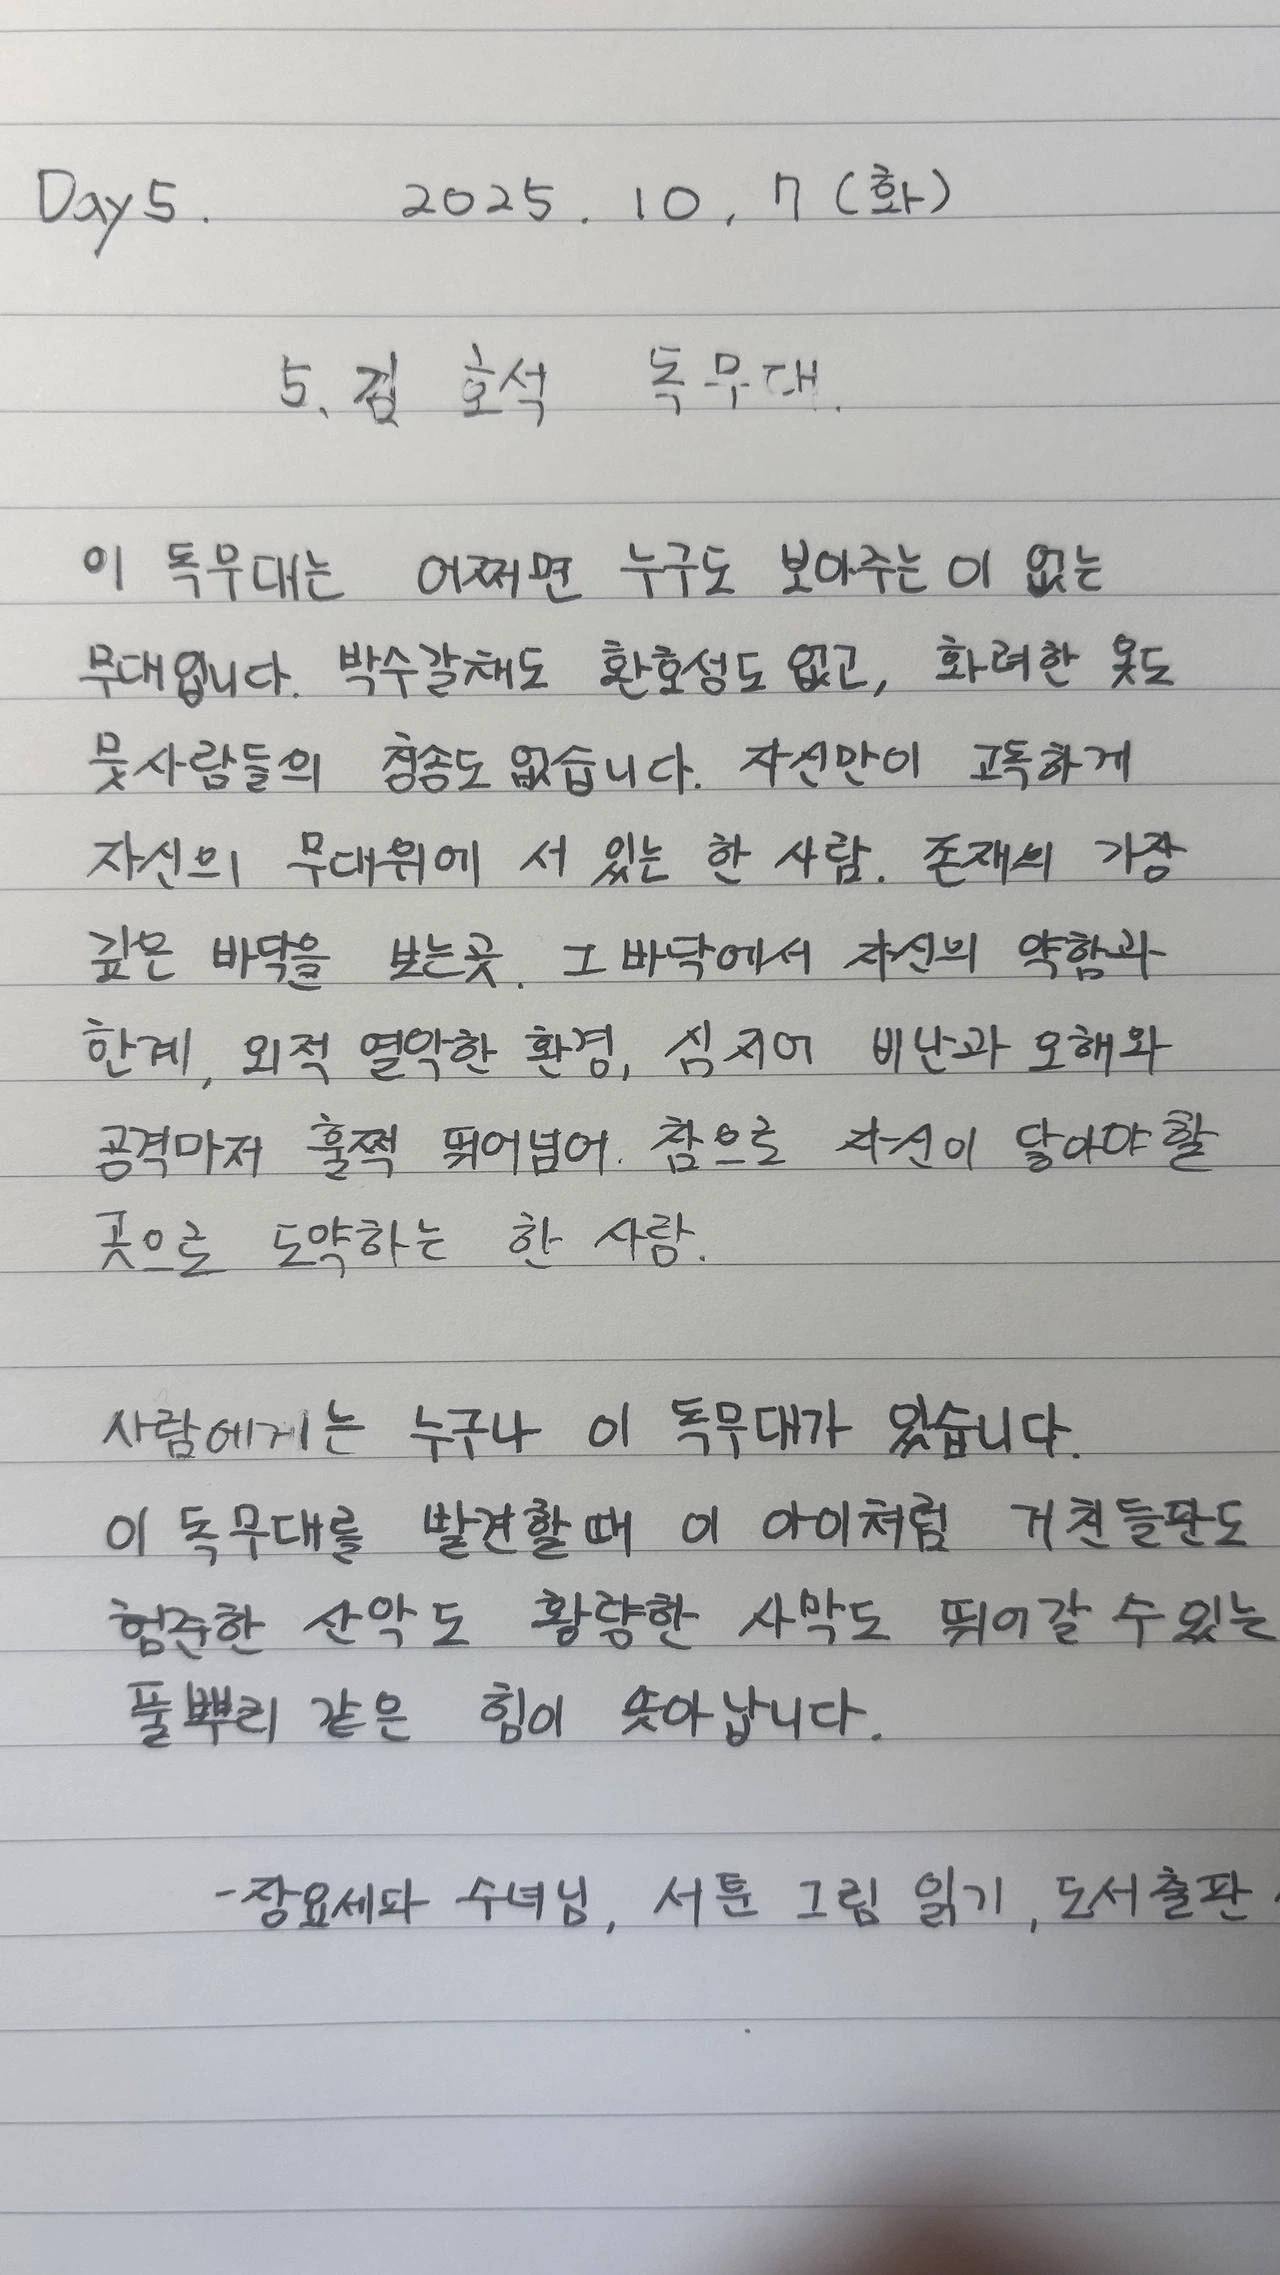 Day 5. 2025. 10. 7 (화)
5. 김 호석 독무대.
이 독무대는 어쩌면 누구도 보아주는 이 없는
무대입니다. 박수갈채도 환호성도 없고, 화려한 옷도
뭇사람들의 칭송도 없습니다. 자신만이 고독하게
자신의 무대위에 서 있는 한 사람. 존재의 가장
깊은 바닥을 보는곳. 그 바닥에서 자신의 약함과
한계, 외적 열악한 환경, 심지어 비난과 오해와
공격마저 훌쩍 뛰어넘어. 참으로 자신이 닿아야 할
곳으로 도약하는 한 사람.
사람에게는 누구나 이 독무대가 있습니다.
이 독무대를 발견할 때 이 아이처럼 거친들판도
험준한 산악도 황량한 사막도 뛰어갈 수 있는
풀뿌리 같은 힘이 솟아 납니다.
-장요세파 수녀님, 서툰 그림 읽기, 도서출판